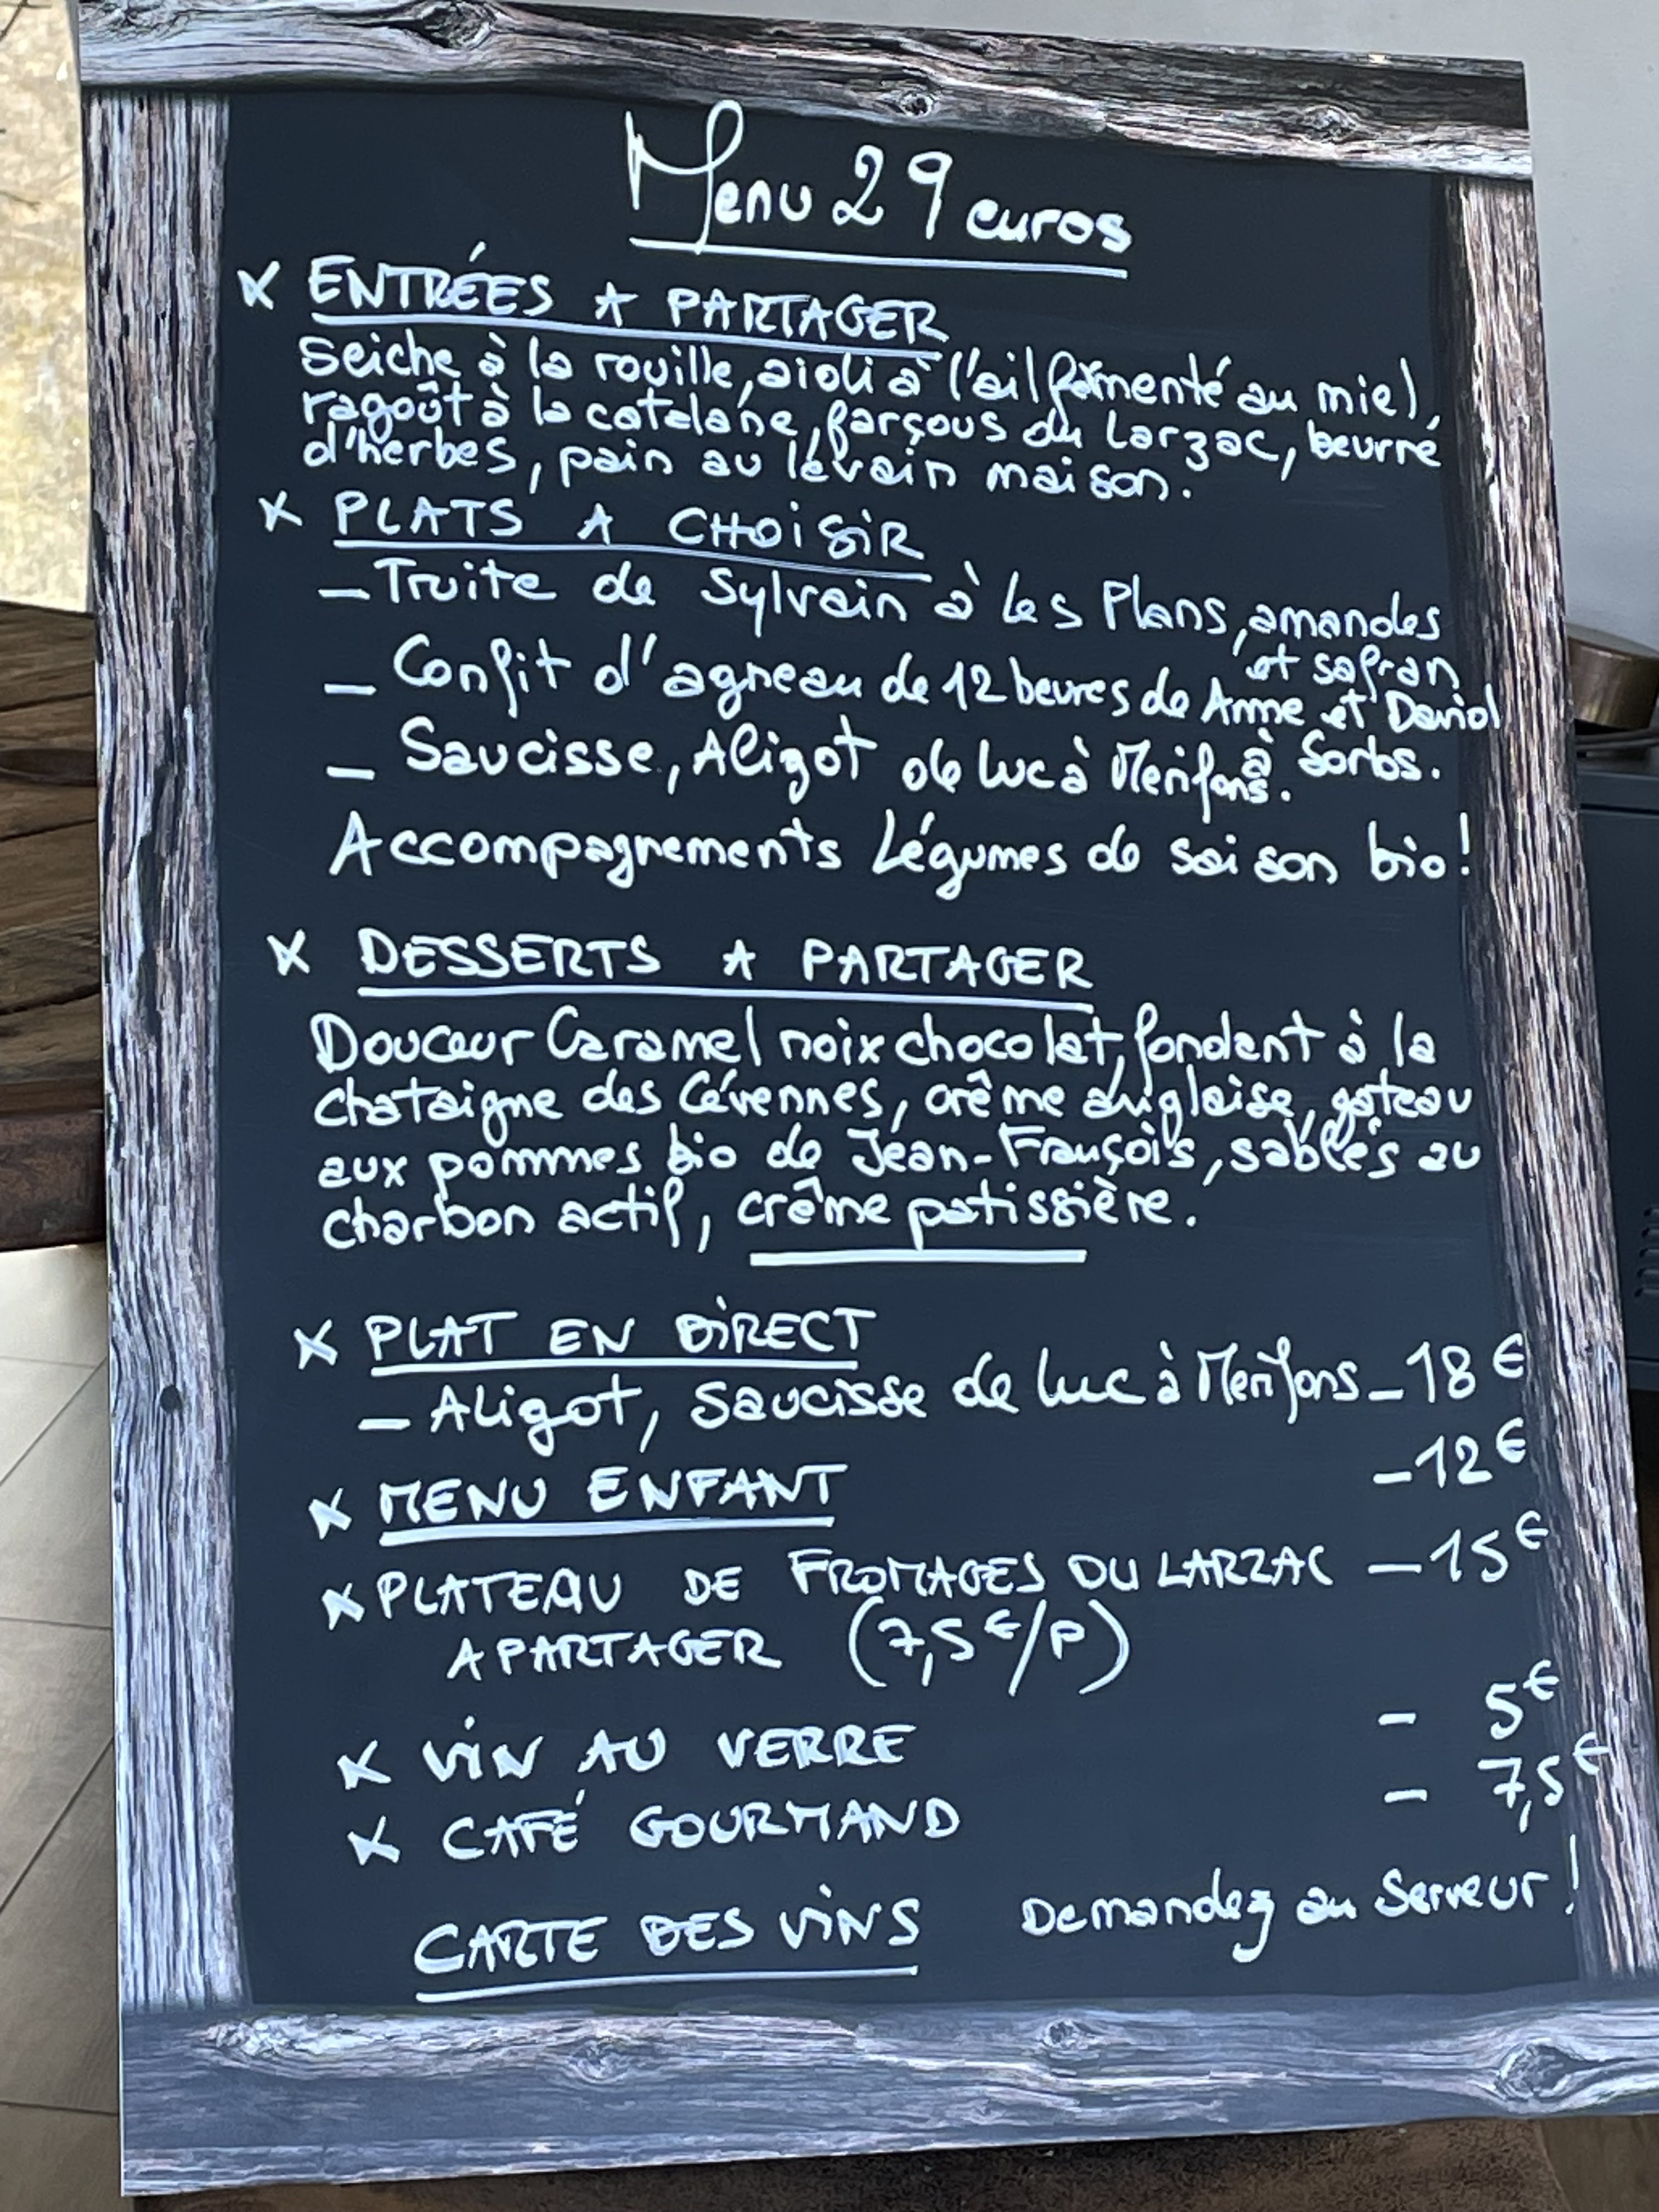 Menu 29 euros
x ENTRÉES A PARTAGER
Seiche à la rouille, aioli à l'ail fermenté au miel,
ragoût à la catalane, farçous du Larzac, beurre
d'herbes, pain au levain maison.
x PLATS A CHOISIR
- Truite de Sylvain à Les Plans, amandes
et safran
- Confit d'agneau de 12 heures de Anne et David
à Sorbs.
- Saucisse, Aligot de Luc à Merifons.
Accompagnements Légumes de saison bio!
x DESSERTS A PARTAGER
Douceur Caramel noix chocolat, fondant à la
chataigne des Cévennes, crême anglaise, gateau
aux pommes bio de Jean-François, sablés au
charbon actif, crême patissière.
x PLAT EN DIRECT
- Aligot, Saucisse de Luc à Merifons - 18 €
x MENU ENFANT - 12 €
x PLATEAU DE FROMAGES DU LARZAC - 15 €
A PARTAGER (7,5 €/P)
x VIN AU VERRE - 5 €
x CAFÉ GOURMAND - 7,5 €
CARTE DES VINS Demandez au Serveur!